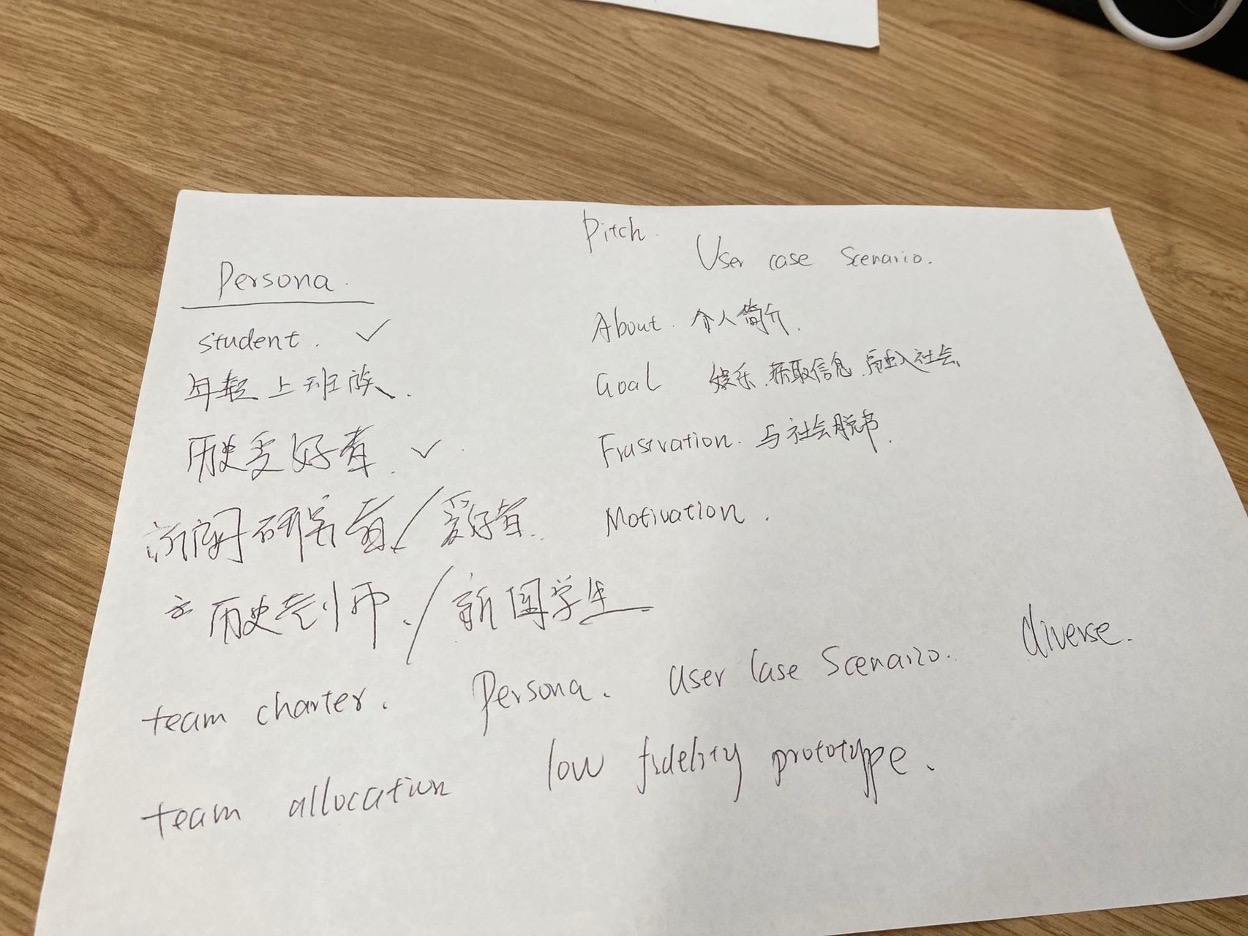 Pitch.
User case Scenario.
Persona.
student. ✓
年轻上班族.
历史爱好者. ✓
新闻研究者/爱好者.
历史老师./新国学生
About. 个人简介.
Goal 娱乐.获取信息.融入社会
Frustration. 与社会脱节.
Motivation.
team charter. Persona. User Case Scenario. diverse.
team allocation low fidelity prototype.